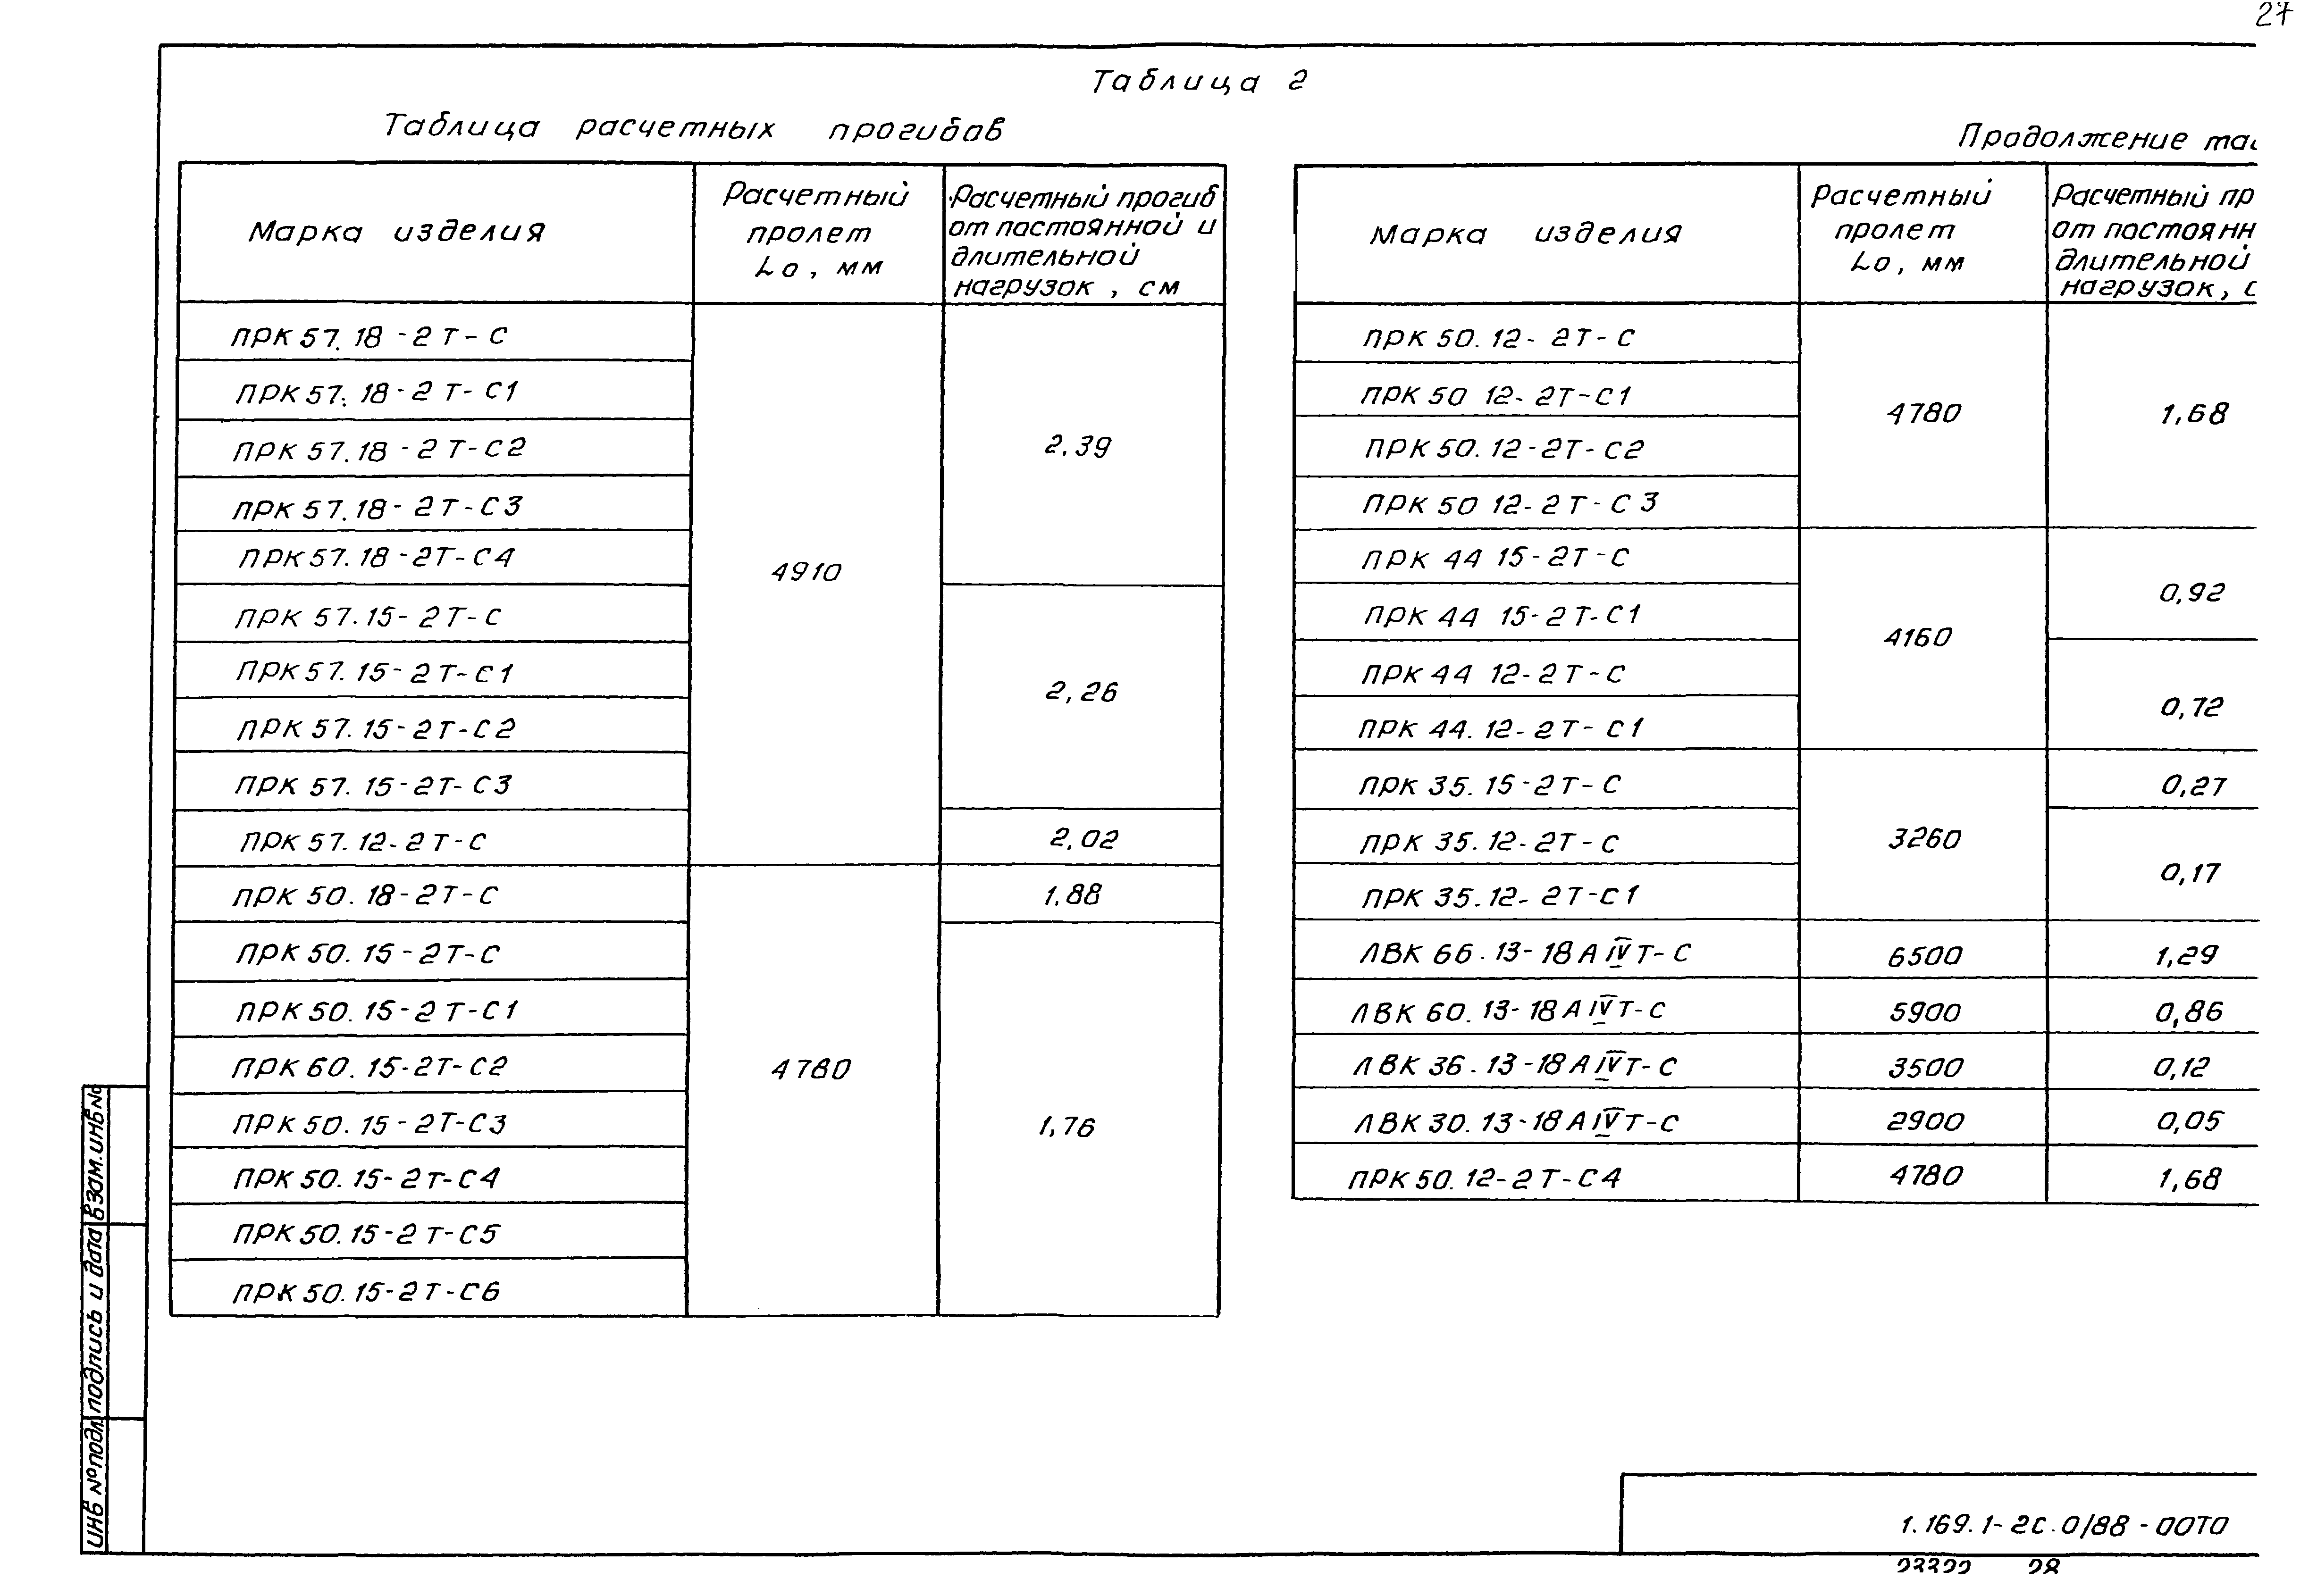 27
Таблица 2
Таблица расчетных прогибов
Марка изделия
Расчетный
пролет
Lо, мм
Расчетный прогиб
от постоянной и
длительной
нагрузок, см
ПРК 57.18-2Т-С
ПРК 57.18-2Т-С1
ПРК 57.18-2Т-С2
ПРК 57.18-2Т-С3
ПРК 57.18-2Т-С4
ПРК 57.15-2Т-С
ПРК 57.15-2Т-С1
ПРК 57.15-2Т-С2
ПРК 57.15-2Т-С3
ПРК 57.12-2Т-С
4910
2,39
2,26
2,02
ПРК 50.18-2Т-С
ПРК 50.15-2Т-С
ПРК 50.15-2Т-С1
ПРК 60.15-2Т-С2
ПРК 50.15-2Т-С3
ПРК 50.15-2Т-С4
ПРК 50.15-2Т-С5
ПРК 50.15-2Т-С6
4780
1,88
1,76
Продолжение
Марка изделия
Расчетный
пролет
Lо, мм
Расчетный пр
от постоянн
длительной
нагрузок, с
ПРК 50.12-2Т-С
ПРК 50 12-2Т-С1
ПРК 50.12-2Т-С2
ПРК 50 12-2Т-С3
4780
1,68
ПРК 44 15-2Т-С
ПРК 44 15-2Т-С1
ПРК 44 12-2Т-С
ПРК 44.12-2Т-С1
4160
0,92
0,72
ПРК 35.15-2Т-С
ПРК 35.12-2Т-С
ПРК 35.12-2Т-С1
3260
0,27
0,17
ЛВК 66.13-18АIVТ-С 6500 1,29
ЛВК 60.13-18АIVТ-С 5900 0,86
ЛВК 36.13-18АIVТ-С 3500 0,12
ЛВК 30.13-18АIVТ-С 2900 0,05
ПРК 50.12-2Т-С4 4780 1,68
Взам.инв.№
Подпись и дата
Инв №подл.
1.169.1-2с.0/88-00ТО
23322 28